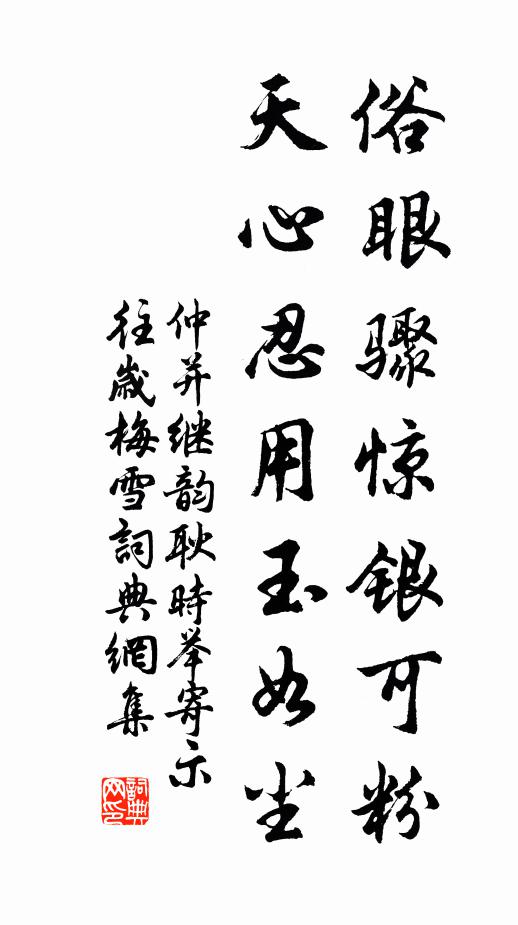 俗眼骤惊银可粉
天心忍用玉如尘
仲并继韵耿時举寄示
往歲梅雪詞典網集
詞典
网印